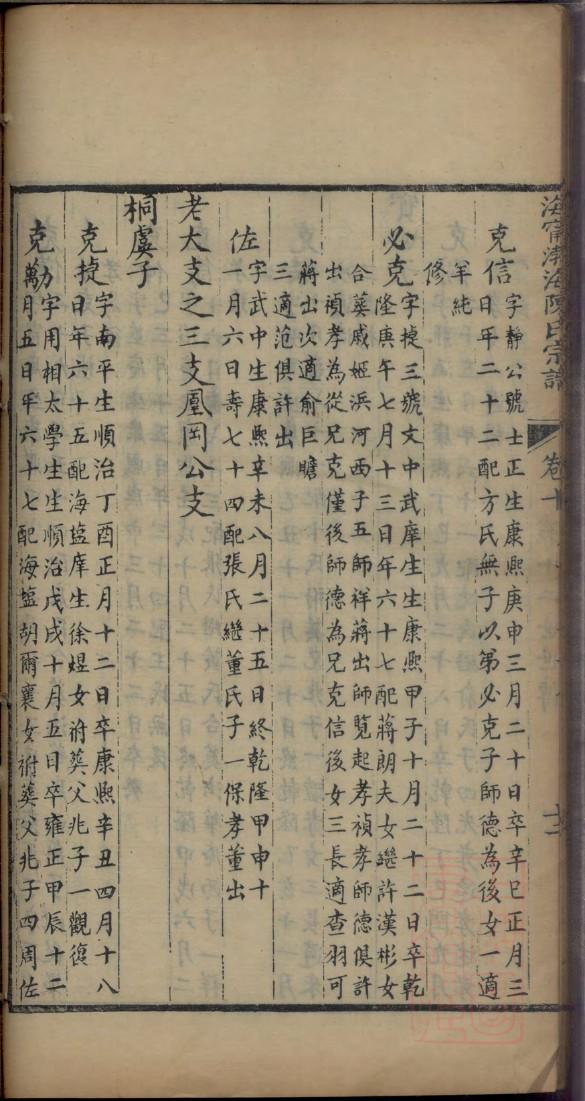 海甯渤海陳氏宗譜
卷十
十二
克信字靜公號士正生康熙庚申三月二十日卒辛巳正月三
日年二十二配方氏無子以弟必克子師德為後女一適
羊純
修
必克字捷三號文中武庠生生康熙甲子十月二十二日卒乾
隆庚午七月十三日年六十七配蔣朗夫女繼許漢彬女
合葬戚姬浜河西子五師祥蔣出師覽起孝禎孝師德俱許
出禎孝為從兄克僅後師德為兄克信後女三長適查羽可
蔣出次適俞巨瞻
三適范俱許出
佐字武中生康熙辛未八月二十五日終乾隆甲申十
一月六日壽七十四配張氏繼董氏子一保孝董出
老大支之三支鳳岡公支
桐虞子
克捷字南平生順治丁酉正月十二日卒康熙辛丑四月十八
日年六十五配海鹽庠生徐煜女祔葬父兆子一觀復
克勱字用相太學生生順治戊戌十月五日卒雍正甲辰十二
月五日年六十七配海鹽胡爾襄女祔葬父兆子四周佐